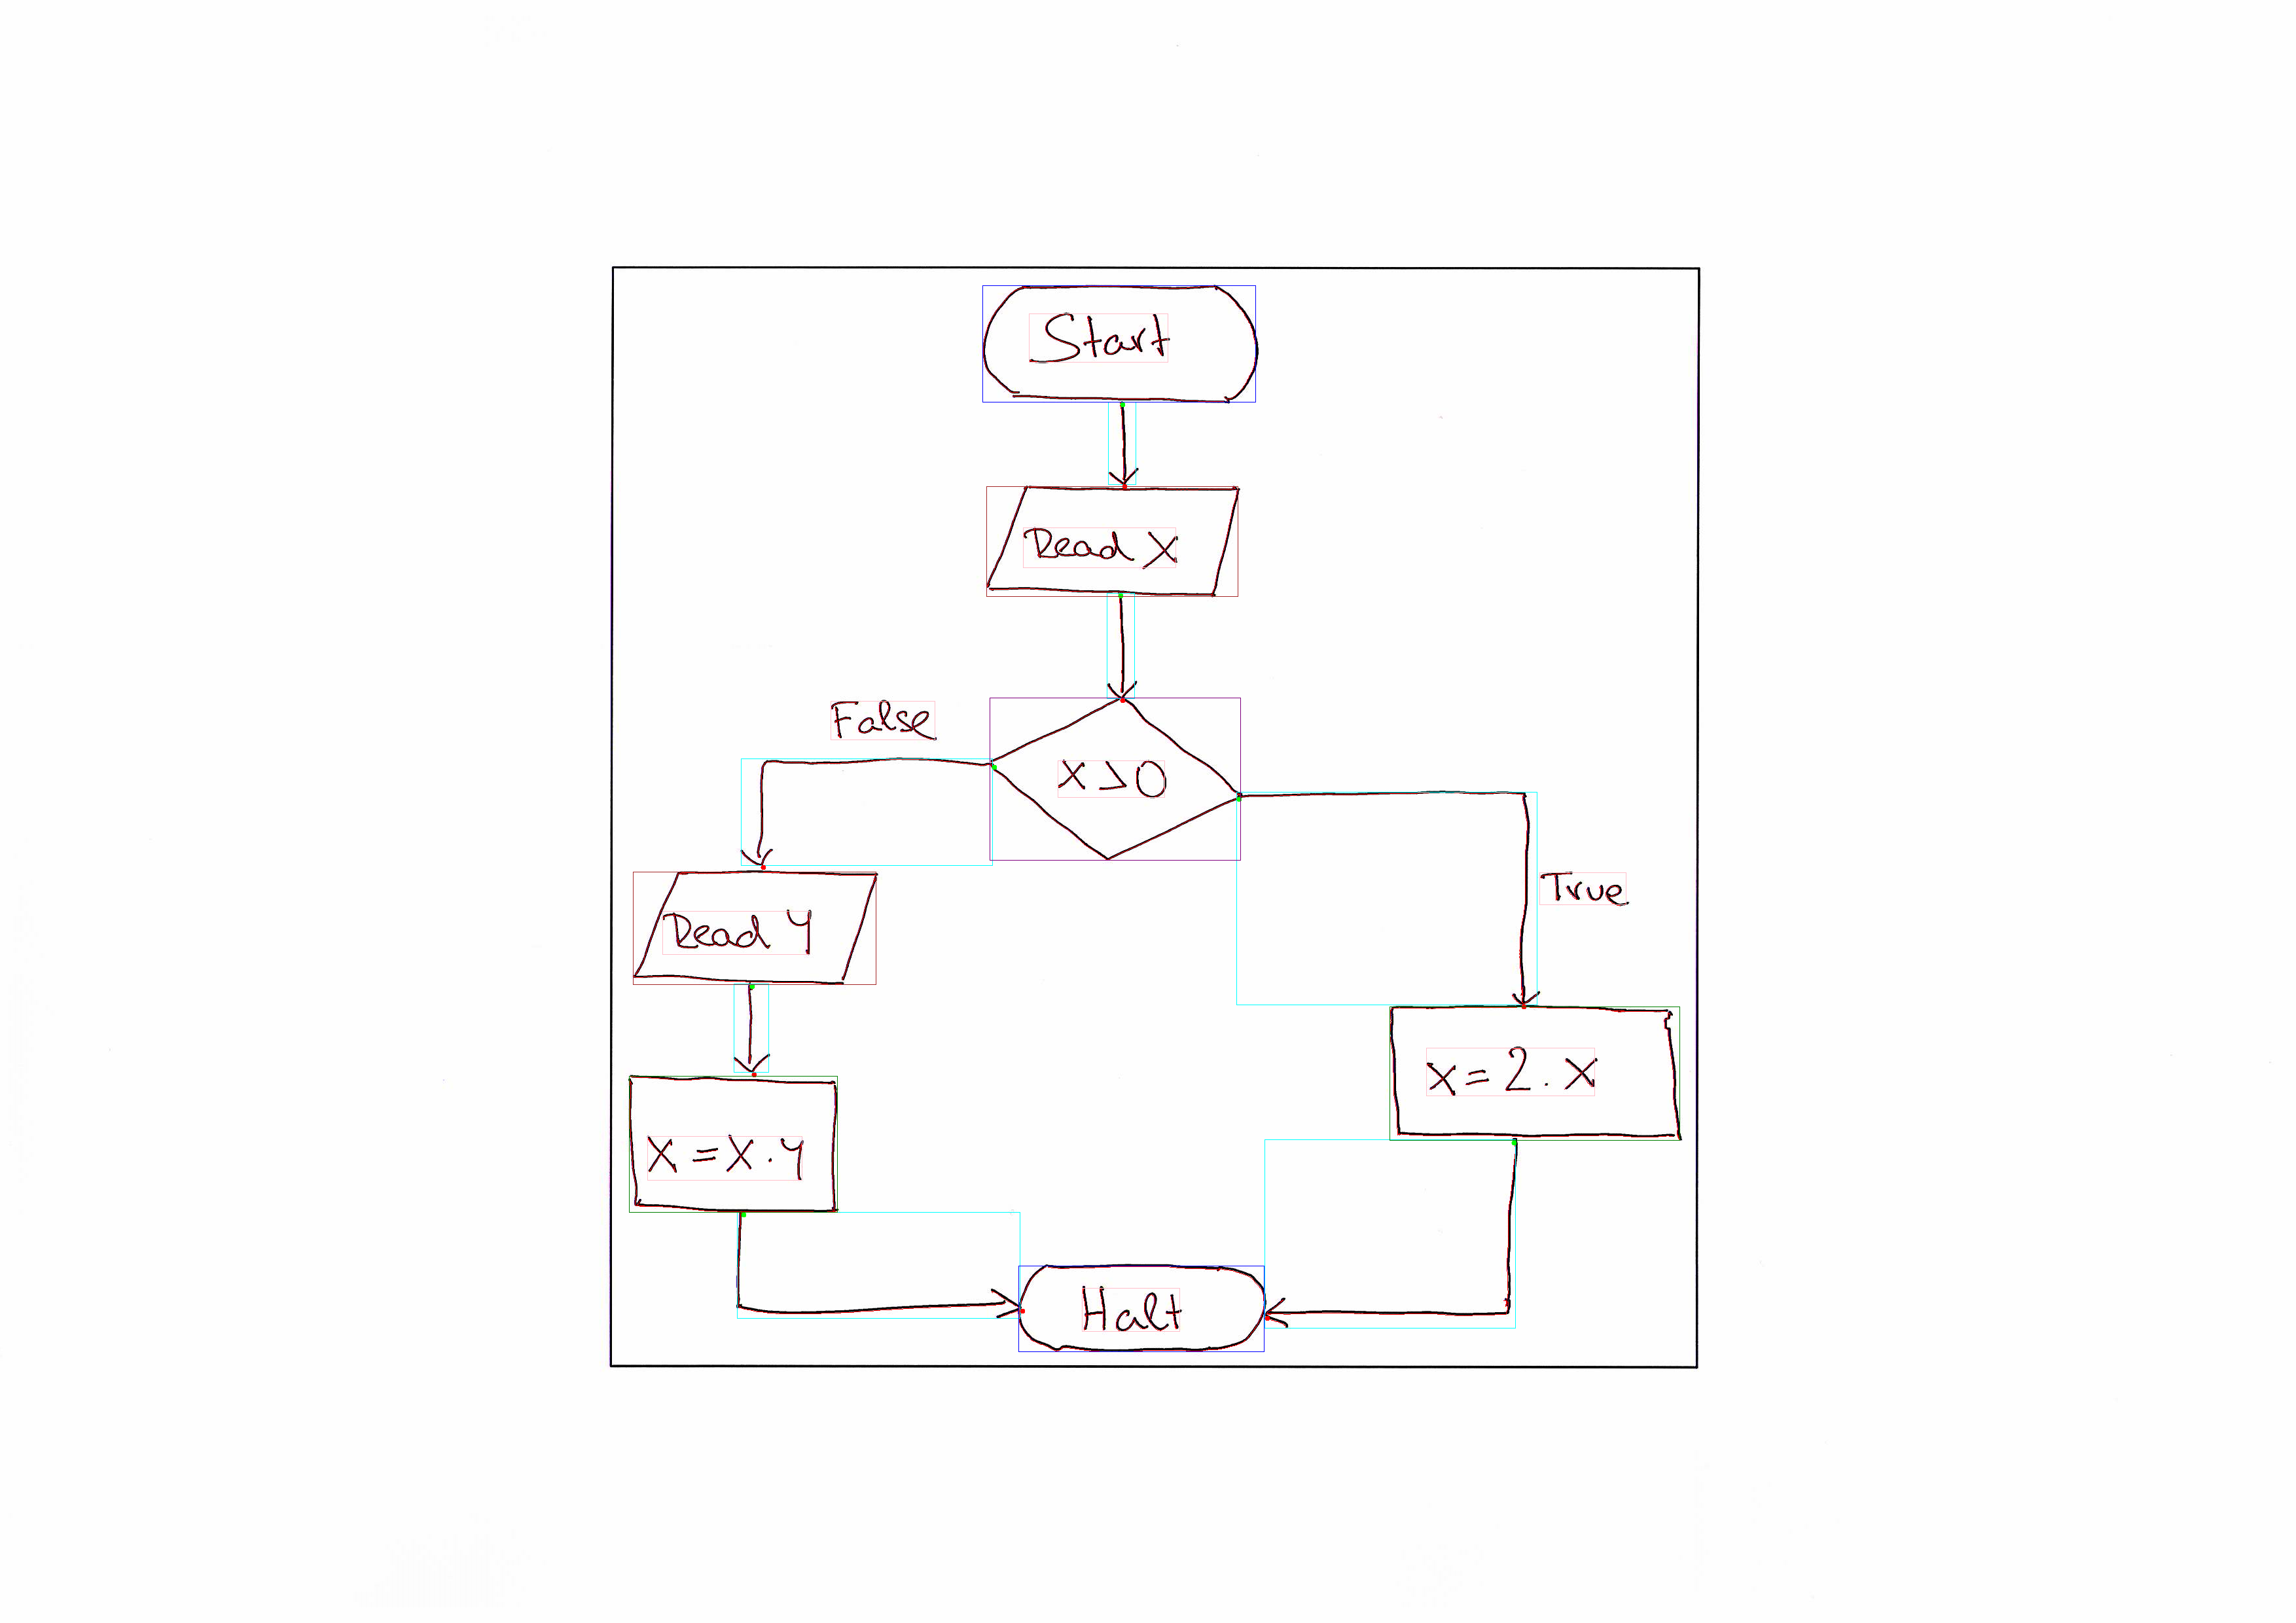 Start
Read X
False
X>0
True
Read Y
X=2.X
X=X.Y
Halt